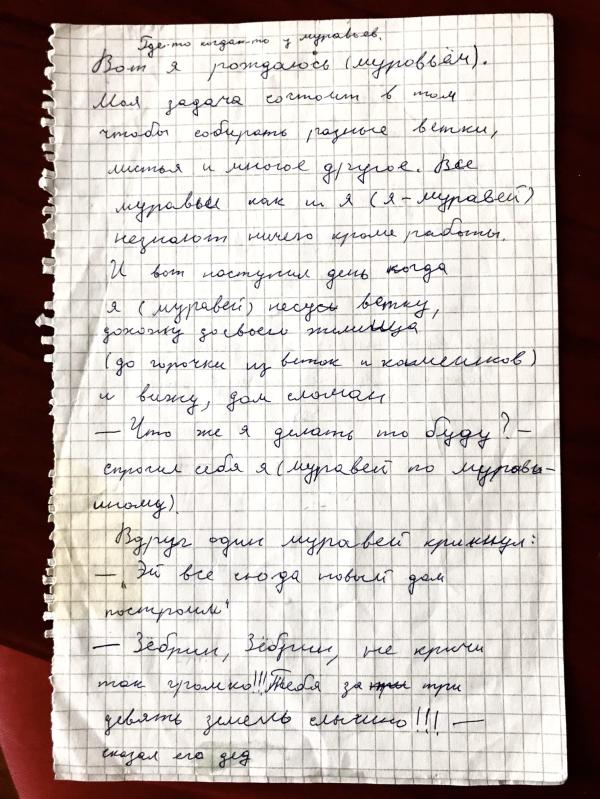 Где-то когдат-то у муравьев.
Вот я рождаюсь (муровьём).
Моя задача состоит в том
чтобы собирать разные ветки,
листья и многое другое. Все
муравьи как и я (я - муравей)
незнают ничего кроме работы.
И вот наступил день когда
я (муравей) несусь ветку,
дохожу досвоего жилища
(до горочки из веток и камешков)
и вижу, дом сломан
— Что же я делать то буду? —
спросил себя я (муравей по муравьи-
иному).
Вдруг один муравей крикнул:
— „Эй все сюда новый дом
построим"
— Зёбрин, Зёбрин, не кричи
так громко!!! Тебя за три
девять земель слышно!!! —
сказал его дед